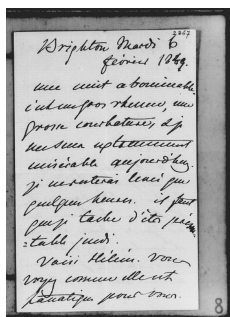 3767
Brighton Mardi 6
février 1849.
une nuit abominable.
c'est un gros rhume, une
grosse courbature, et je
me sens
misérable aujourd'hui.
je ne serai levé que
quelques heures. il faut
que je tache d'être présen-
=table jeudi.
Voici Hélène. Vous
voyez comme elle est
fanatique pour vous.
8